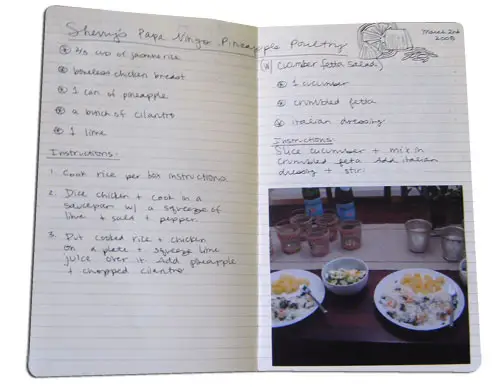 Sherry's Papa Ningo Pineapple Poultry
2/3 cup of jasmine rice
boneless chicken breast
1 can of pineapple
a bunch of cilantro
1 lime
Instructions:
1. Cook rice per box instructions
2. Dice chicken + cook in a
saucepan w/ a squeeze of
lime + salt + pepper.
3. Put cooked rice + chicken
on a plate + squeeze lime
juice over it. Add pineapple
+ chopped cilantro
March 2nd
2008
(w/ cucumber fetta salad)
1 cucumber
crumbled fetta
italian dressing
Instructions:
Slice cucumber + mix in
crumbled feta. Add italian
dressing + stir.